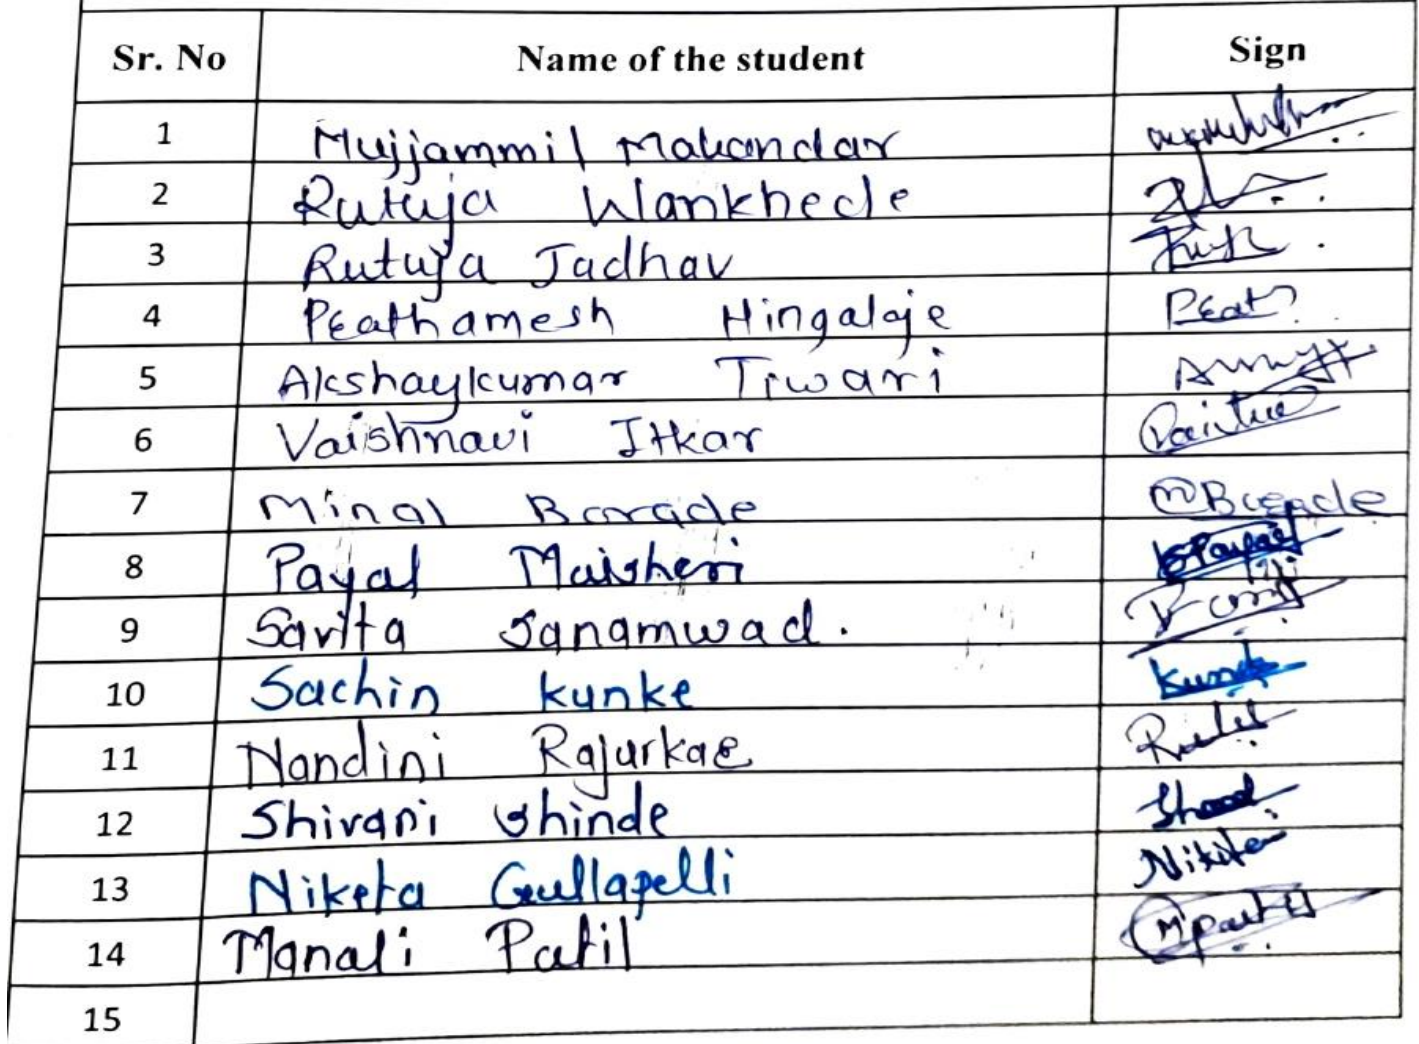 Sr. No Name of the student Sign
1 Mujjammil Makandar
2 Rutuja Wankhede
3 Rutuja Jadhav
4 Prathamesh Hingalaje Prat
5 Akshaykumar Tiwari
6 Vaishnavi Itkar
7 Minal Borade MBorade
8 Payal Maisheri Payal
9 Savita Janamwad.
10 Sachin Kunke
11 Nandini Rajurkar
12 Shivani Shinde
13 Niketa Gullapelli Nikita
14 Manali Patil MPatil
15